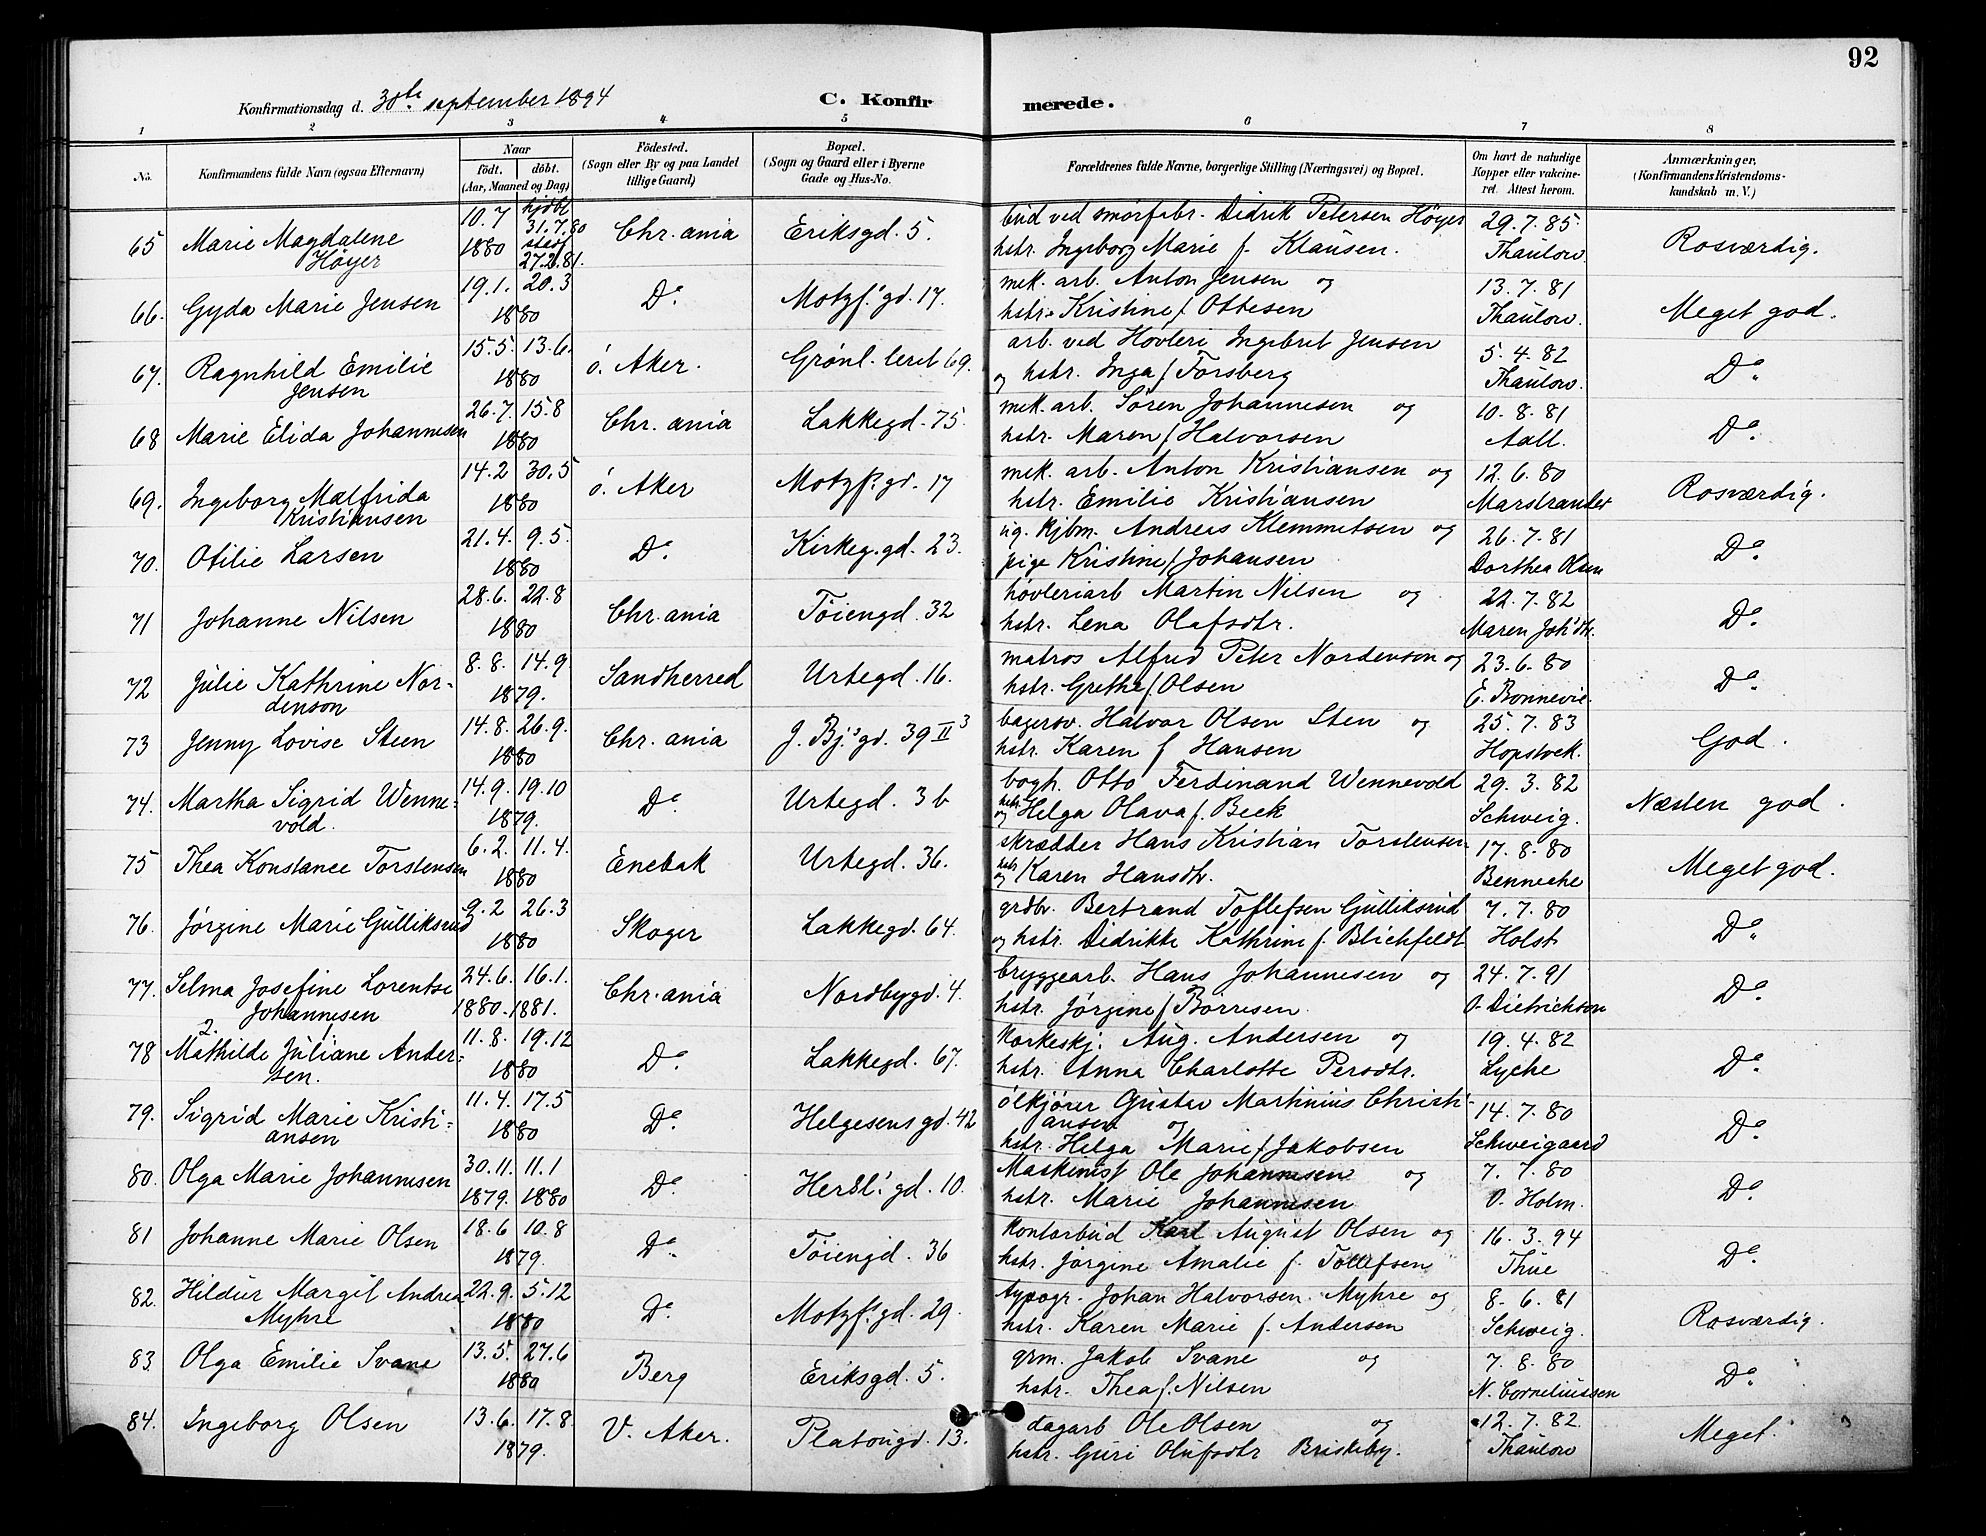 92
Konfirmationsdag d. 30te september 1894 C. Konfirmerede.
1 2 3 4 5 6 7 8
No. Konfirmandens fulde Navn (ogsaa Efternavn) Naar født. døbt. (Aar, Maaned og Dag) Fødested. (Sogn eller By og paa Landet tillige Gaard) Bopæl. (Sogn og Gaard eller i Byerne Gade og Hus-No. Forældrenes fulde Navne, borgerlige Stilling (Næringsvei) og Bopæl. Om havt de naturlige Kopper eller vakcineret. Attest herom. Anmærkninger, (Konfirmandens Kristendomskundskab m. V.)
65 Marie Magdalene Høyer 10.7 1880 hjdbt 31.7.80 stadf 27.2.81. Chr.ania Eriksgd. 5. bud ved smørfabr. Didrik Petersen Høyer hstr. Ingeborg Marie f. Klausen. 29.7.85. Thaulow. Rosværdig.
66. Gyda Marie Jensen 19.1. 20.3 1880 Do. Motzf.' gd. 17. mek. arb. Anton Jensen og hstr. Kristine f. Ottesen 13.7.81 Thaulow. Meget god.
67. Ragnhild Emilie Jensen 15.5. 13.6. 1880 ö. Aker. Grønl. leret 69. arb. ved Høvleri Ingebret Jensen og hstr. Inga f. Forsberg 5.4.82 Thaulow. Do.
68 Marie Elida Johannesen 26.7. 15.8 1880 Chr.ania Lakkegd. 75. mek. arb. Søren Johannesen og hstr. Maren f. Halvorsen 10.8.81 Aall. Do.
69. Ingeborg Malfrida Kristiansen 14.2 30.5 1880 ö. Aker Motzf.' gd. 17 mek. arb. Anton Kristiansen og hstr. Emilie Kristiansen 12.6.80 Marstrander Rosværdig.
70. Otilie Larsen 21.4. 9.5. 1880 Do. Kirkeg.gd. 23. ug. kjbm. Andreas Klemmetsen og pige Kristine f. Johansen 26.7.81 Dorthea Olsen Do.
71 Johanne Nilsen 28.6. 22.8 1880 Chr.ania Töiengd. 32 høvleriarb Martin Nilsen og hstr. Lena Olafsdtr. 22.7.82 Maren Joh'dtr. Do.
72 Julie Kathrine Nordenson 8.8. 14.9. 1879. Sandherred Urtegd. 16. matros Alfred Peter Nordenson og hstr. Grethe f. Olsen 23.6.80 E. Bonnevie. Do.
73 Jenny Lovise Steen 14.8. 26.9. 1880 Chr.ania J. Bj.s gd. 39 II 3 bagersv. Halvor Olsen Sten og hstr. Karen f. Hansen 25.7.83 Hopstock. God.
74. Martha Sigrid Wennevold. 14.9. 19.10 1879. Do. Urtegd. 3 b bogh. Otto Ferdinand Wennevold og hstr Helga Olava f. Beck 29.3.82 Schweig. Næsten god.
75 Thea Konstance Torstensen 6.2. 11.4. 1880 Enebak Urtegd. 36. skrædder Hans Kristian Torstensen og hstr Karen Hansdtr. 17.8.80 Benneche Meget god.
76. Jørgine Marie Gulliksrud 9.2 26.3 1880 Skoger Lakkegd. 64. grdbr. Bertrand Toflefsen Gulliksrud og hstr. Didrikke Kathrine f. Blichfeldt 7.7.80 Holst Do.
77. Selma Josefine Lorentse Johannesen 24.6. 16.1. 1880. 1881. Chr.ania Nordbygd. 4. bryggearb. Hans Johannesen og hstr. Jørgine f. Börresen. 24.7.91 O. Dietrichson Do.
78 Mathilde Juliane Andersen. 2. 1 11.8. 19.12 1880 Do. Lakkegd. 67. Korkeskj. Aug. Andersen og hstr. Anna Charlotte Persdtr. 19.4.82 Lyche Do.
79. Sigrid Marie Kristiansen 11.4. 17.5 1880 Do. Helgesens gd. 42 ölkjörer Gustav Martinius Christiansen og hstr. Helga Marie f. Jakobsen 14.7.80 Schweigaard Do.
80. Olga Marie Johannesen 30.11. 11.1 1879. 1880 Do. Hersl.' gd. 10. Maskinist Ole Johannesen og hstr. Marie Johannesen 7.7.80 O. Holm. Do.
81 Johanne Marie Olsen 18.6 10.8 1879. Do. Töiengd. 36 Kontorbud Karl August Olsen og hstr. Jørgine Amalie f. Tollefsen 16.3.94 Thue Do.
82. Hildur Margit Andrea Myhre 22.9. 5.12 1880 Do. Motzf.s gd. 29. typogr. Johan Halvorsen Myhre og hstr. Karen Marie f. Andersen 8.6.81 Schweig. Rosværdig.
83. Olga Emilie Svane 13.5. 27.6 1880 Berg Eriksgd. 5. grm. Jakob Svane og hstr. Thea f. Nilsen 7.8.80 N. Corneliussen Do.
84. Ingeborg Olsen 13.6. 17.8. 1879. V. Aker. Platougd. 13. dagarb Ole Olsen og hstr. Guri Olufsdtr Briskeby. 12.7.82. Thaulow Meget.